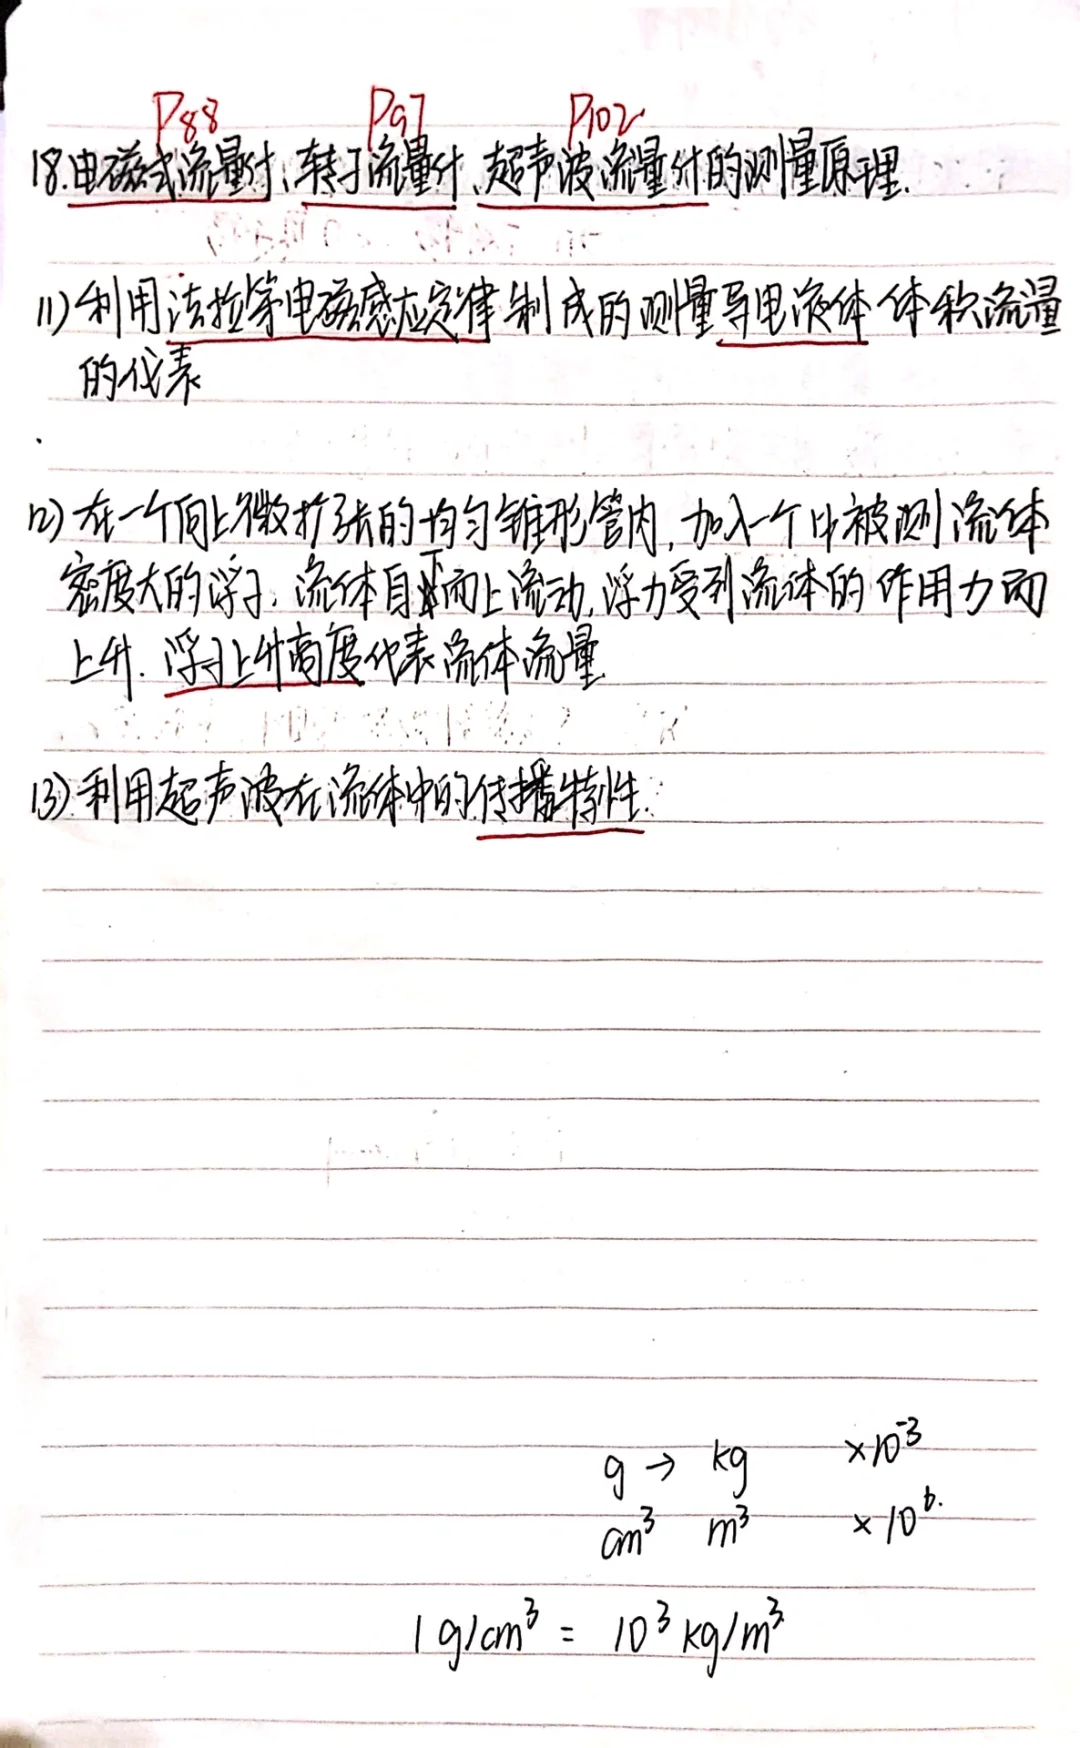 P88 P97 P102
18.电磁式流量计、转子流量计、超声波流量计的测量原理.
(1)利用法拉第电磁感应定律制成的测量导电液体体积流量
的仪表
(2)在一个向上微扩张的均匀锥形管内,加入一个比被测流体
密度大的浮子,流体自下而上流动,浮力受到流体的作用力而
上升.浮子上升高度代表流体流量
(3)利用超声波在流体中的传播特性.
g → kg ×10⁻³
cm³ m³ ×10⁶.
1g/cm³ = 10³kg/m³